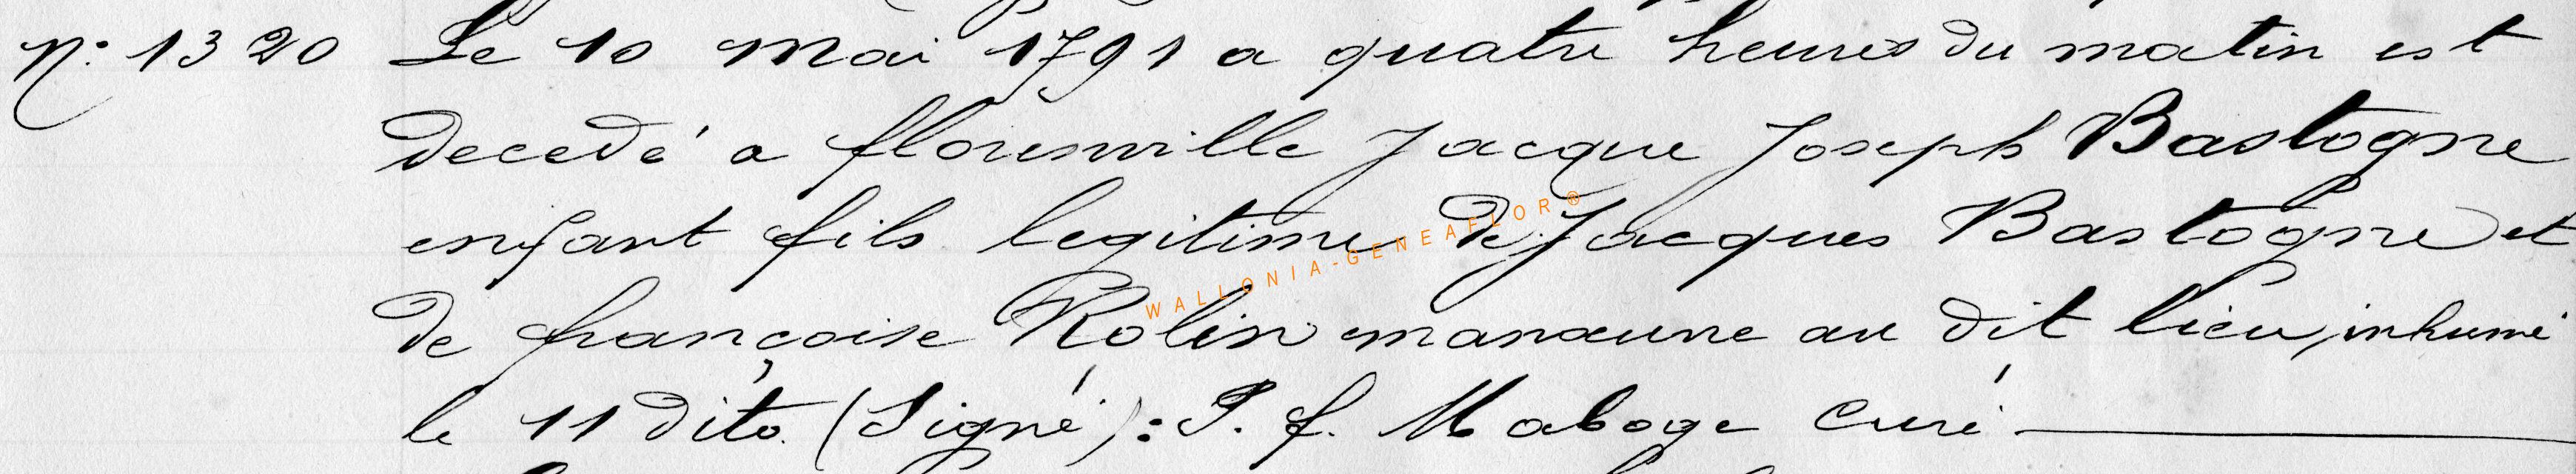 N.° 1320 Le 10 mai 1791 a quatre heures du matin est
decedé a florenville Jacque Joseph Bastogne
enfant fils legitime de Jacques Bastogne et
de françoise Rolin manœuvre au dit lieu, inhumé
le 11 dito. (Signé): P. f. Maboge Curé
WALLONIA-GENEAFLOR®